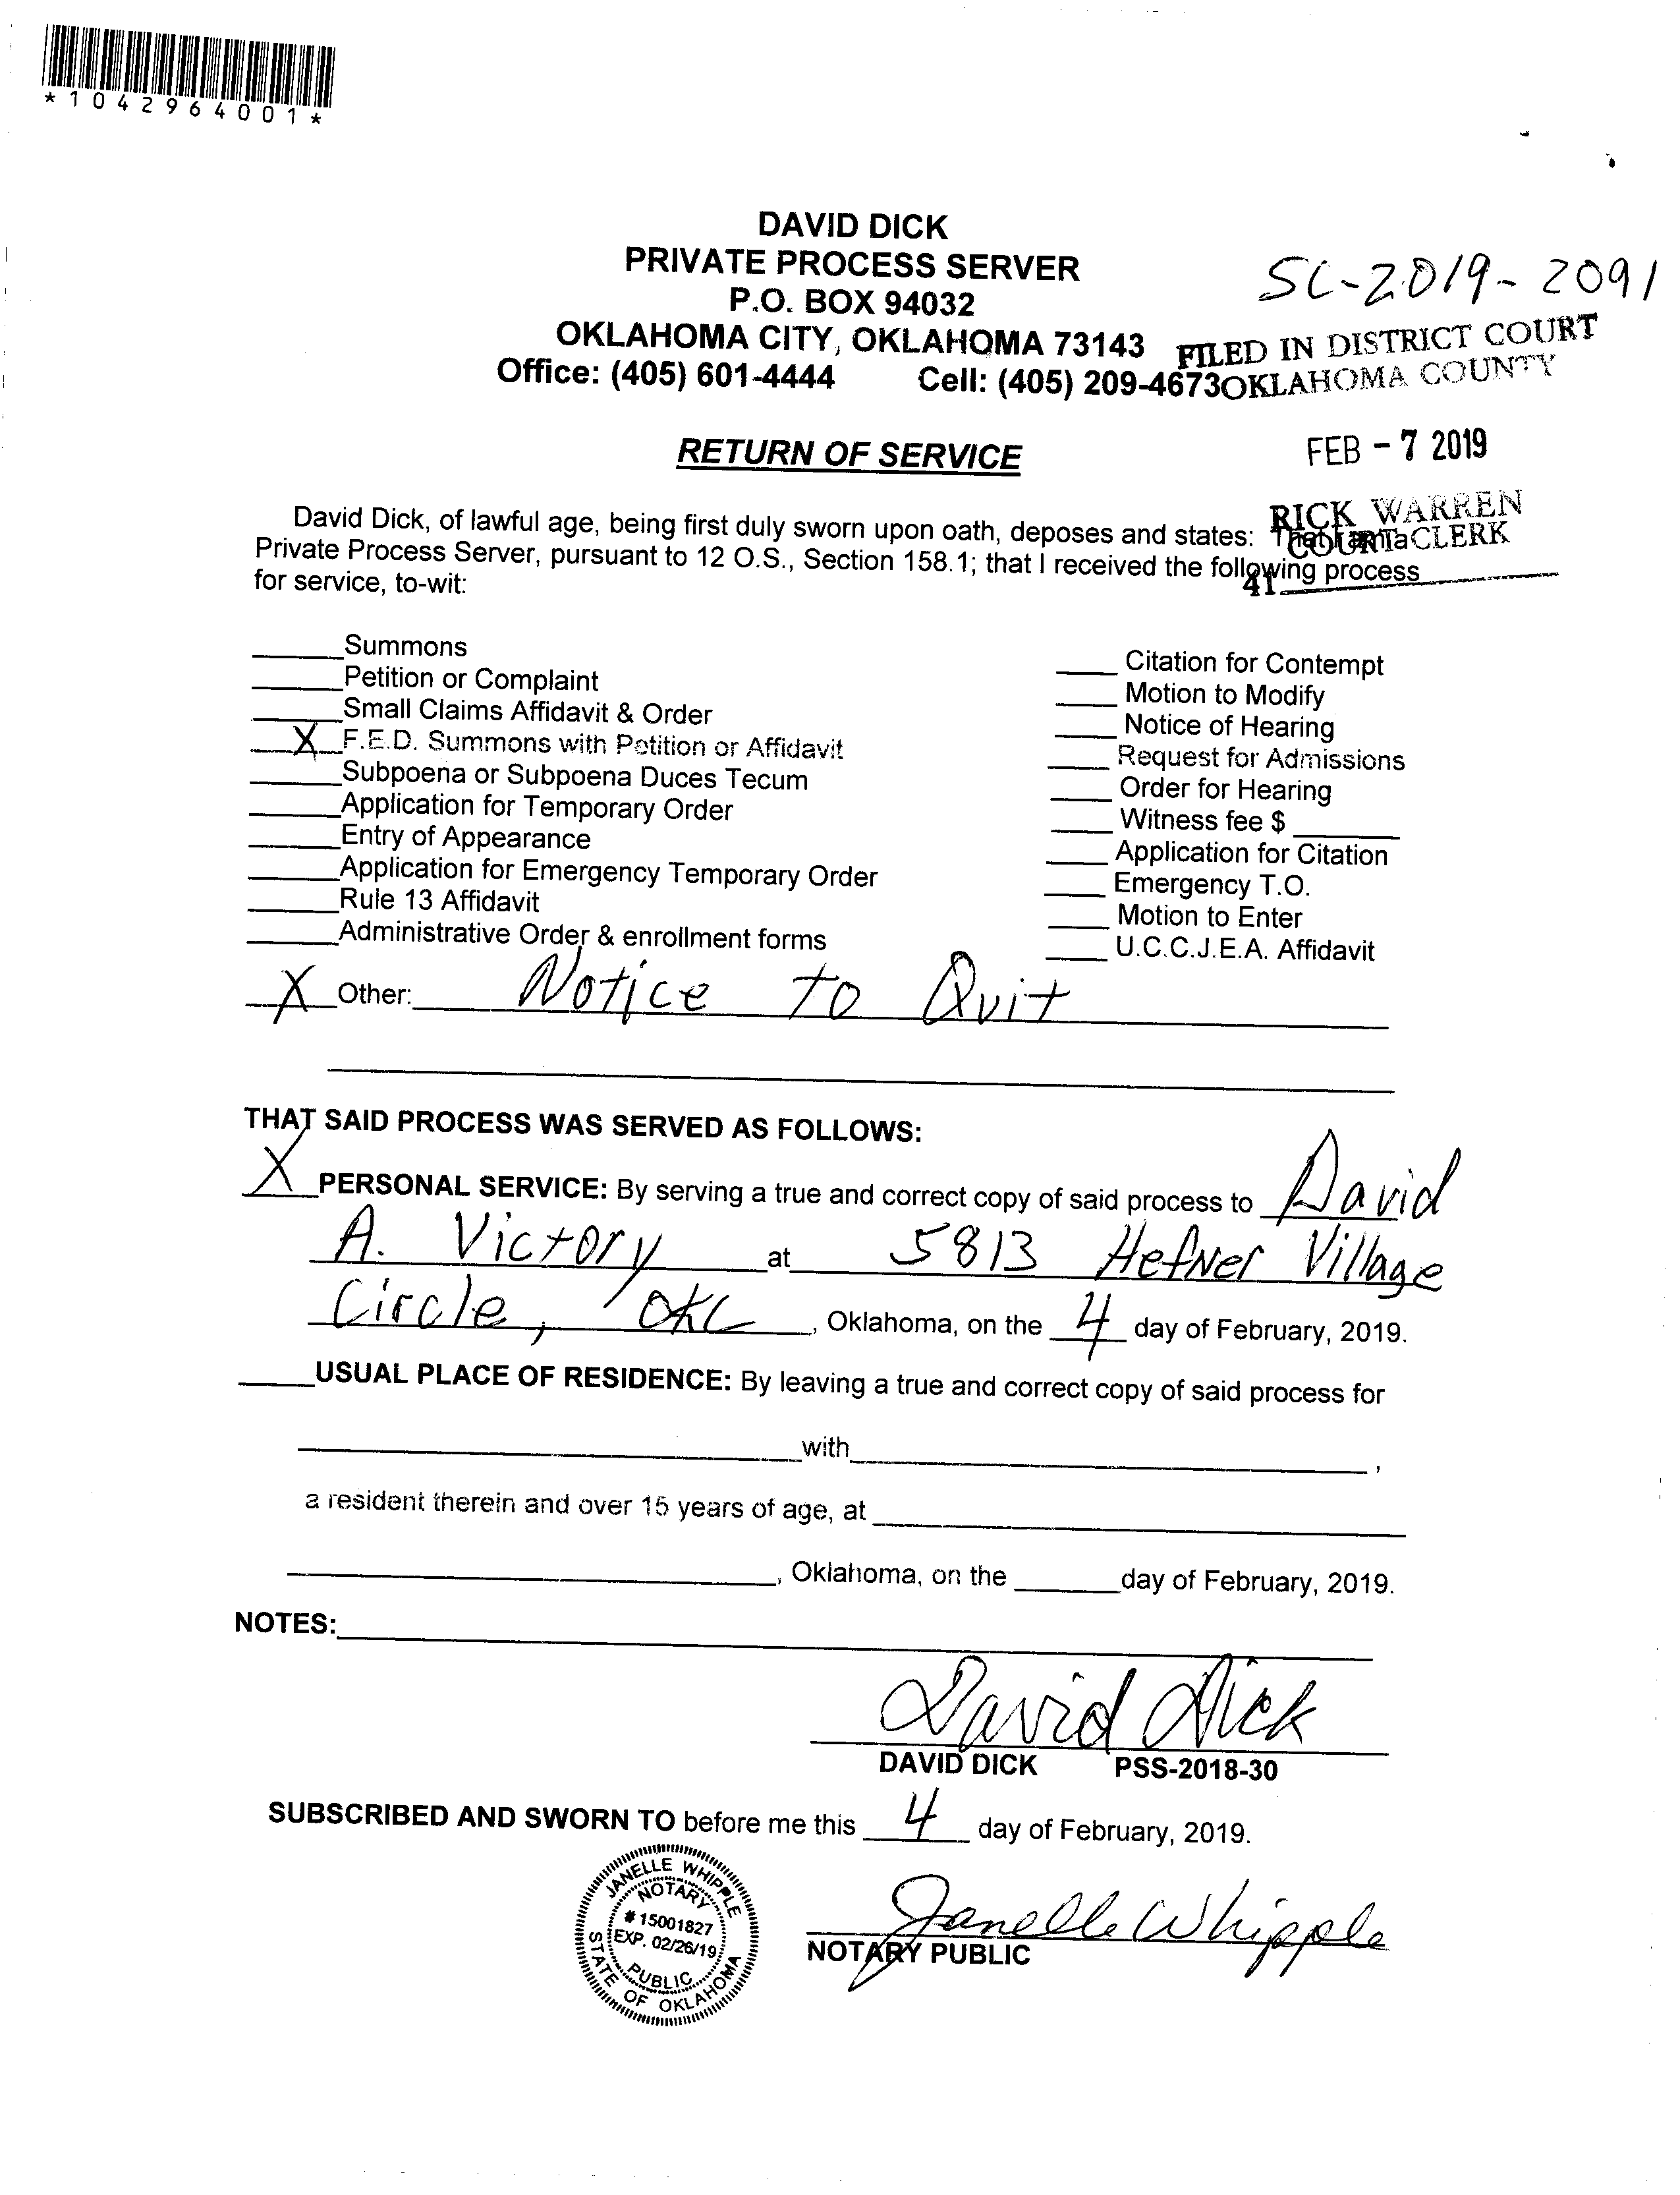 *1042964001*
DAVID DICK
PRIVATE PROCESS SERVER
SC-2019-2091
P.O. BOX 94032
OKLAHOMA CITY, OKLAHOMA 73143
FILED IN DISTRICT COURT
Office: (405) 601-4444 Cell: (405) 209-4673
OKLAHOMA COUNTY
RETURN OF SERVICE
FEB - 7 2019
RICK WARREN
COURT CLERK
41
David Dick, of lawful age, being first duly sworn upon oath, deposes and states: That I am a
Private Process Server, pursuant to 12 O.S., Section 158.1; that I received the following process
for service, to-wit:
Summons
Petition or Complaint
Small Claims Affidavit & Order
X F.E.D. Summons with Petition or Affidavit
Subpoena or Subpoena Duces Tecum
Application for Temporary Order
Entry of Appearance
Application for Emergency Temporary Order
Rule 13 Affidavit
Administrative Order & enrollment forms
Citation for Contempt
Motion to Modify
Notice of Hearing
Request for Admissions
Order for Hearing
Witness fee $
Application for Citation
Emergency T.O.
Motion to Enter
U.C.C.J.E.A. Affidavit
X Other: Notice to Quit
THAT SAID PROCESS WAS SERVED AS FOLLOWS:
X PERSONAL SERVICE: By serving a true and correct copy of said process to David
A. Victory at 5813 Hefner Village
Circle, OKC, Oklahoma, on the 4 day of February, 2019.
USUAL PLACE OF RESIDENCE: By leaving a true and correct copy of said process for
with ,
a resident therein and over 15 years of age, at
, Oklahoma, on the day of February, 2019.
NOTES:
David Dick
DAVID DICK PSS-2018-30
SUBSCRIBED AND SWORN TO before me this 4 day of February, 2019.
JANELLE WHIPPLE
NOTARY
# 15001827
EXP. 02/26/19
PUBLIC
STATE OF OKLAHOMA
Janelle Whipple
NOTARY PUBLIC